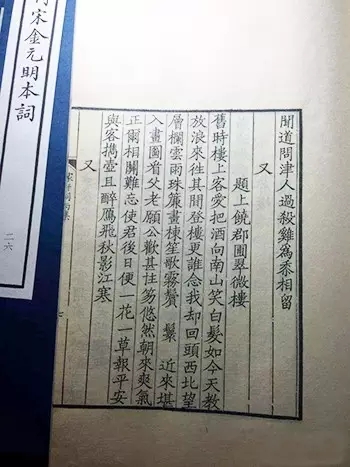 聞道問津人過殺雞為黍相留
又
題上饒郡圃翠微樓
舊時樓上客愛把酒向南山笑白髮如今天教
放浪來往其間登樓更誰念我却回頭西北望
層欄雲雨珠簾畫棟笙歌霧鬢鬟　近來堪
入畫圖看父老願公歡甚拄笏悠然朝來爽氣
正爾相關難忘使君後日便一花一草報平安
與客攜壺且醉鴈飛秋影江寒
又
宋金元明本詞
二六